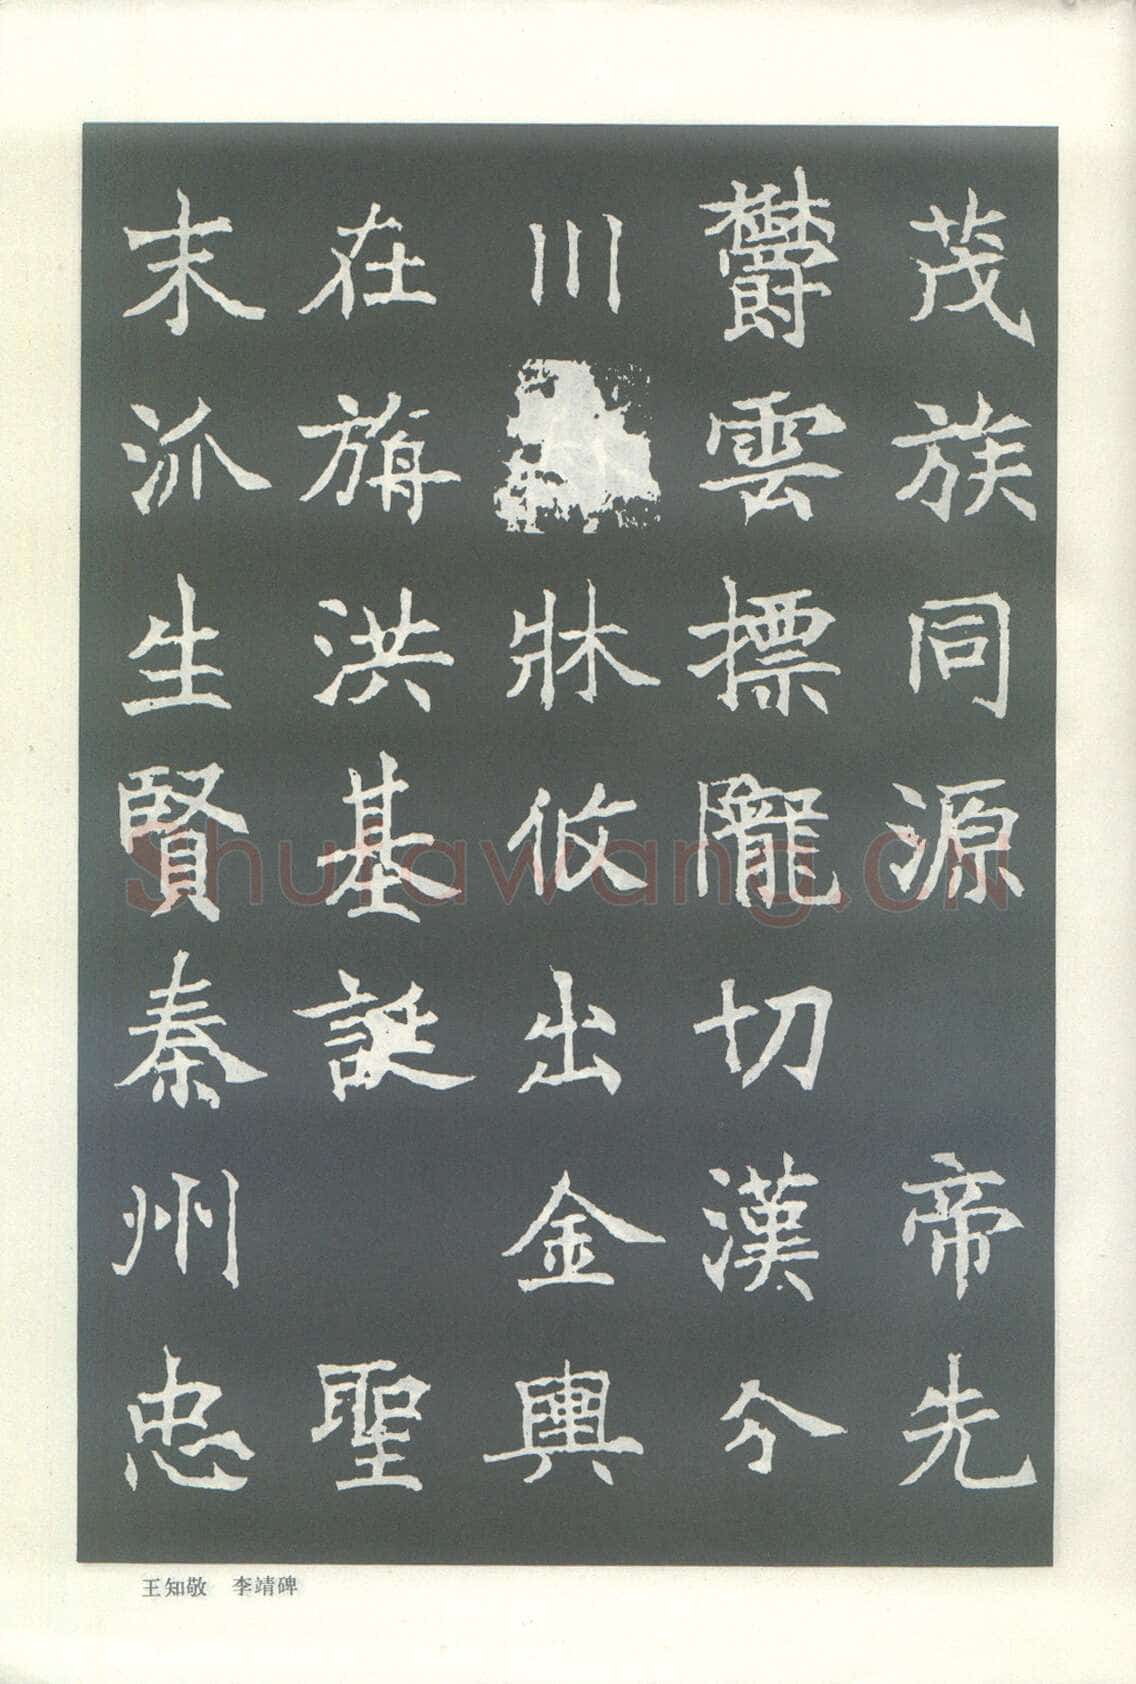 茂族同源　帝先
鬱雲摽隴切漢分
川牀攸出金輿
在旃洪基誕　聖
末派生賢秦州忠
王知敬　李靖碑
Shufawang.cn